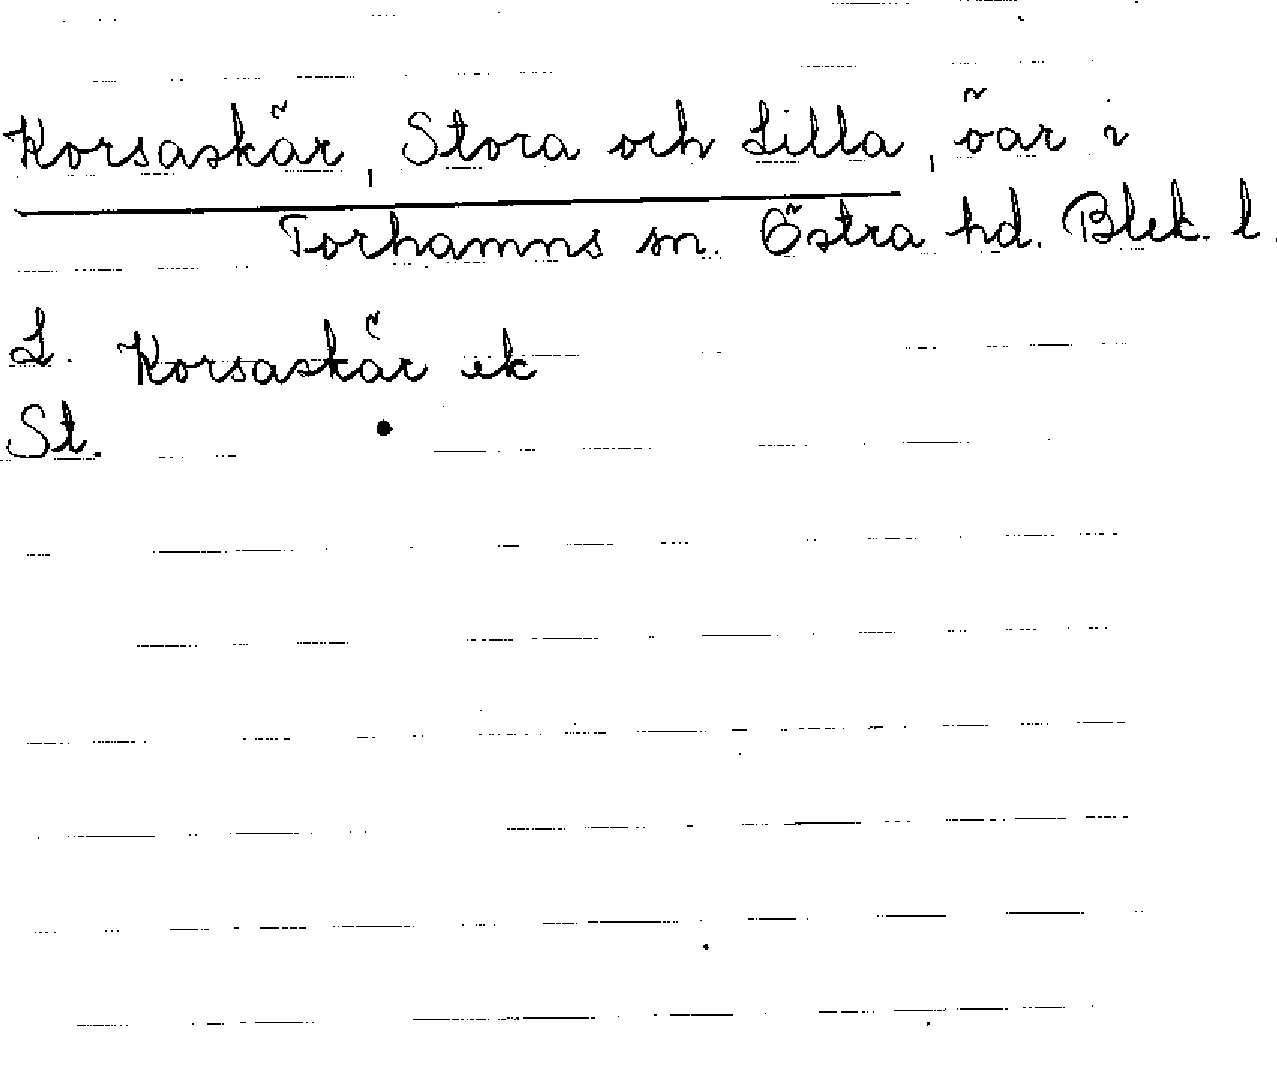 Korsaskär, Stora och Lilla, öar i
Torhamns sn. Östra hd. Blek. l.
L. Korsaskär ek
St.